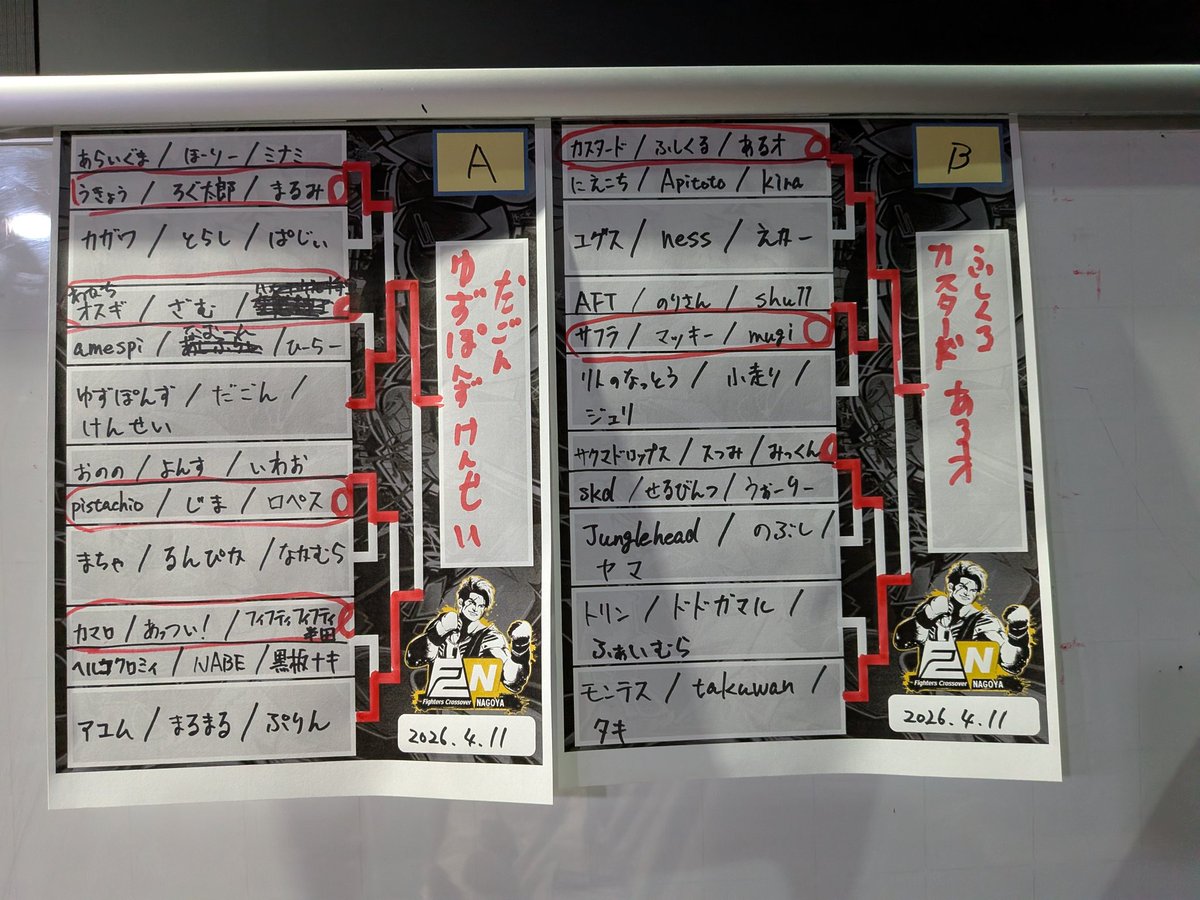 A
あらいぐま / ほーりー / ミナミ
うきょう / ろぐ太郎 / まるみ
カガワ / とらし / ぱじぃ
オスギ / ざむ /
amespi / / ひーらー
ゆずぽんず / だごん /
けんせい
おのの / よんす / いわお
pistachio / じま / ロペス
まちゃ / るんぴか / なかむら
カマロ / あっつい! / フィフティフィフティ
半田
ヘルシェクロミィ / NABE / 黒板ナキ
アユム / まるまる / ぷりん
だごん
ゆずぽんず けんせい
F2N
Fighters Crossover
NAGOYA
2026.4.11
B
カスタード / ふしくる / あるオ
にえこち / Apitoto / kira
ユゲス / ness / えかー
AFT / のりさん / shu11
サフラ / マッキー / mugi
リトのなっとう / 小走り /
ジュリ
サクマドロップス / スつみ / みっくん
skd / せるびんつ / うぉーター
Junglehead / のぶし /
ヤマ
トリン / ドドガマル /
ふぁいむら
モニテス / takuwan /
タキ
ふしくる
カスタード あるオ
F2N
Fighters Crossover
NAGOYA
2026.4.11